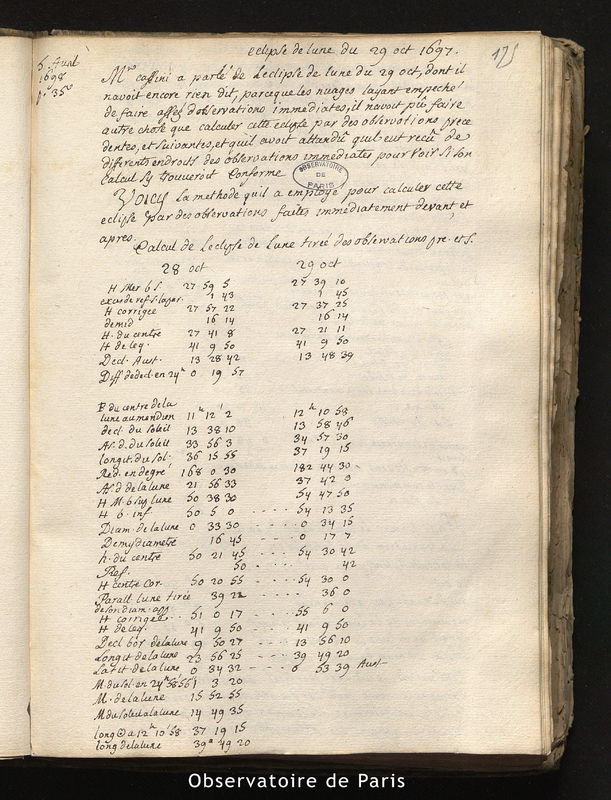 175
5 Avril
1698
eclipse de lune du 29 oct 1697.
Mr. cassini a parlé de Leclipse de lune du 29 oct, dont il
navoit encore rien dit, parceque les nuages layant empeché
de faire assez dobservations immediates, il navoit pû faire
autre chose que calculer cette eclipse par des observations prece
dentes, et suivantes, et quil avoit attendû quil eut recû de
differents endroits des observations immediates pour voir si son
calcul sy trouveroit conforme
OBSERVATOIRE
DE
PARIS
Voicy la methode quil a employé pour calculer cette
eclipse par des observations faites immediatement devant, et
apres.
Calcul de Leclipse de Lune tirée des observations pre. et s.
28 oct 29 oct
H Mer b S. 27 59 5 27 39 10
exces de ref. s. la par. 1 43 1 45
H corrigée 27 57 22 27 37 25
demid 16 14 16 14
H. du centre 27 41 8 27 21 11
H de leq. 41 9 50 41 9 50
Decl. Aust. 13 28 42 13 48 39
Diff de decl. en 24h 0 19 57
P du centre de la
lune au meridien 11h 12' 2 12h 10 58
decl. du soleil 13 38 10 13 58 46
As. d. du soleil 33 56 3 34 57 30
longit. du sol. 36 15 55 37 19 15
Red. en degré 168 0 30 182 44 30
As. d de la lune 21 56 33 37 42 0
H M. b sup lune 50 38 30 54 47 50
H b. inf. 50 5 0 - - - - 54 13 35
Diam. de la lune 0 33 30 - - - 0 34 15
Demydiametre 16 45 - - - 0 17 7
h. du centre 50 21 45 - - - 54 30 42
Ref. 50 - - - - 42
H centre cor. 50 20 55 - - - 54 30 0
Parall lune tirée 39 22 - - - - 36 0
de son diam. app
H corrigée.. 51 0 17 - - - 55 6 0
H de leq. 41 9 50 41 9 50
Decl bor de la lune 9 50 27 - - - 13 56 10
Longit de la lune 23 56 25 - - - 39 49 20
Latit de la lune 0 34 32 - - - 0 53 39 Aust
M. du sol. en 24h 58' 56" 1 3 20
M. de la lune 15 52 55
M du soleil a la lune 14 49 35
long ☉ a 12h 10' 58 37 19 15
long de la lune 39° 49 20
Observatoire de Paris